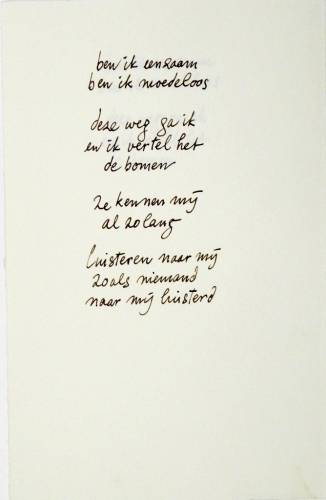 ben ik eenzaam
ben ik moedeloos
deze weg ga ik
en ik vertel het
de bomen
ze kennen mij
al zo lang
luisteren naar mij
zoals niemand
naar mij luisterd